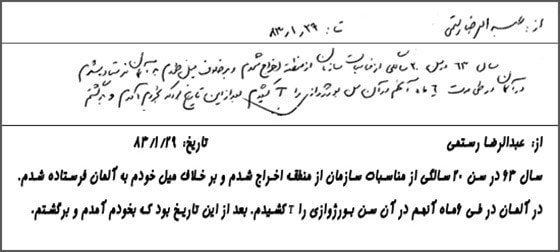 از: عبدالرضا رستمی تا: ۸۳٫۱٫۲۹
سال ۶۳ در سن ۲۰ سالگی از مناسبات سازمان از منطقه اخراج شدم و برخلاف میل خودم به آلمان فرستاده شدم
در آلمان در طی مدت ۶ ماه آنهم در آن سن بورژوازی را T کشیدم بعد از این تاریخ بود که بخودم آمدم و برگشتم
از: عبدالرضا رستمی تاریخ: ۸۳/۱/۲۹
سال ۶۳ در سن ۲۰ سالگی از مناسبات سازمان از منطقه اخراج شدم و بر خلاف میل خودم به آلمان فرستاده شدم.
در آلمان در طی ۶ماه آنهم در آن سن بورژوازی را T کشیدم. بعد از این تاریخ بود که بخودم آمدم و برگشتم.